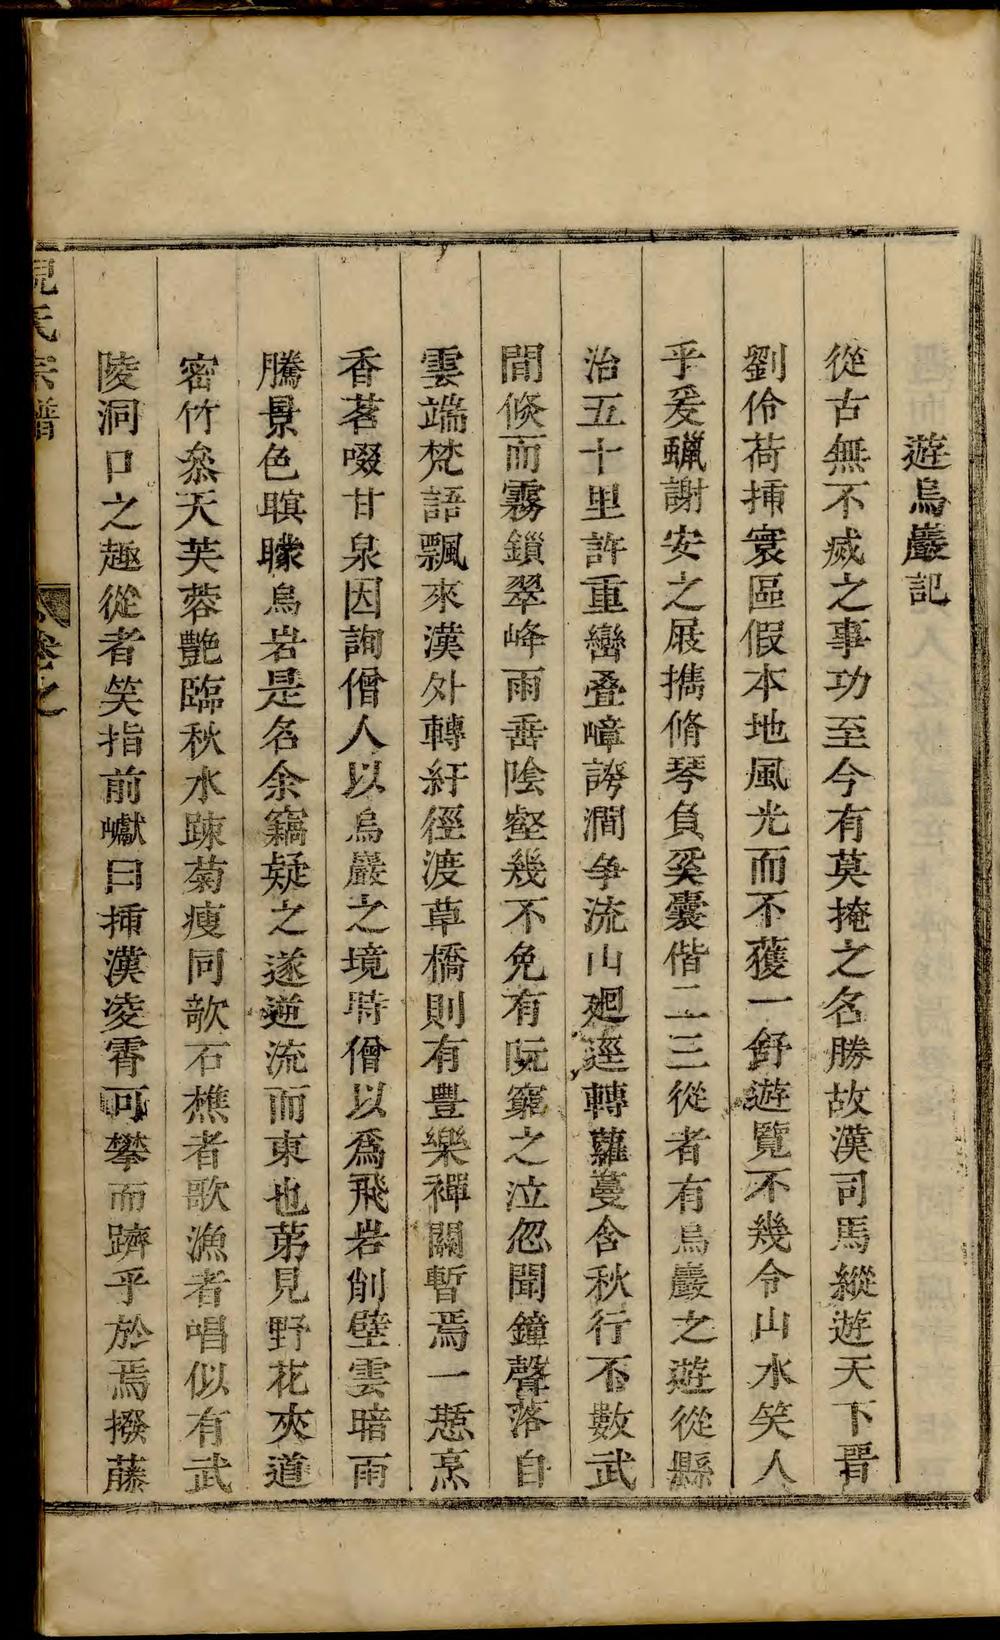 遊烏巖記
從古無不痶之事功至今有莫掩之名勝故漢司馬縱遊天下晋
劉伶荷揷寰區假本地風光而不獲一舒遊覽不幾令山水笑人
乎爰躐謝安之屐擕脩琴負奚囊偕二三從者有烏巖之遊從縣
治五十里許重巒叠嶂誇澗争流山廻逕轉蘿蔓含秋行不數武
間倐而霧鎖翠峰雨垂陰壑幾不免有阮窮之泣忽聞鐘聲落自
雲端梵語飄來漢外轉紆徑渡草橋則有豊樂禪關暫焉一憇烹
香茗啜甘泉因詢僧人以烏巖之境時僧以爲飛岩削壁雲暗雨
騰景色暝矇烏岩是名余竊疑之遂逆流而東也苐見野花夾道
密竹叅天芙蓉艷臨秋水踈菊瘦同歌石樵者歌漁者唱似有武
陵洞口之趣從者笑指前巘曰揷漢凌霄可攀而躋乎於焉撥藤
倪氏宗譜
卷之